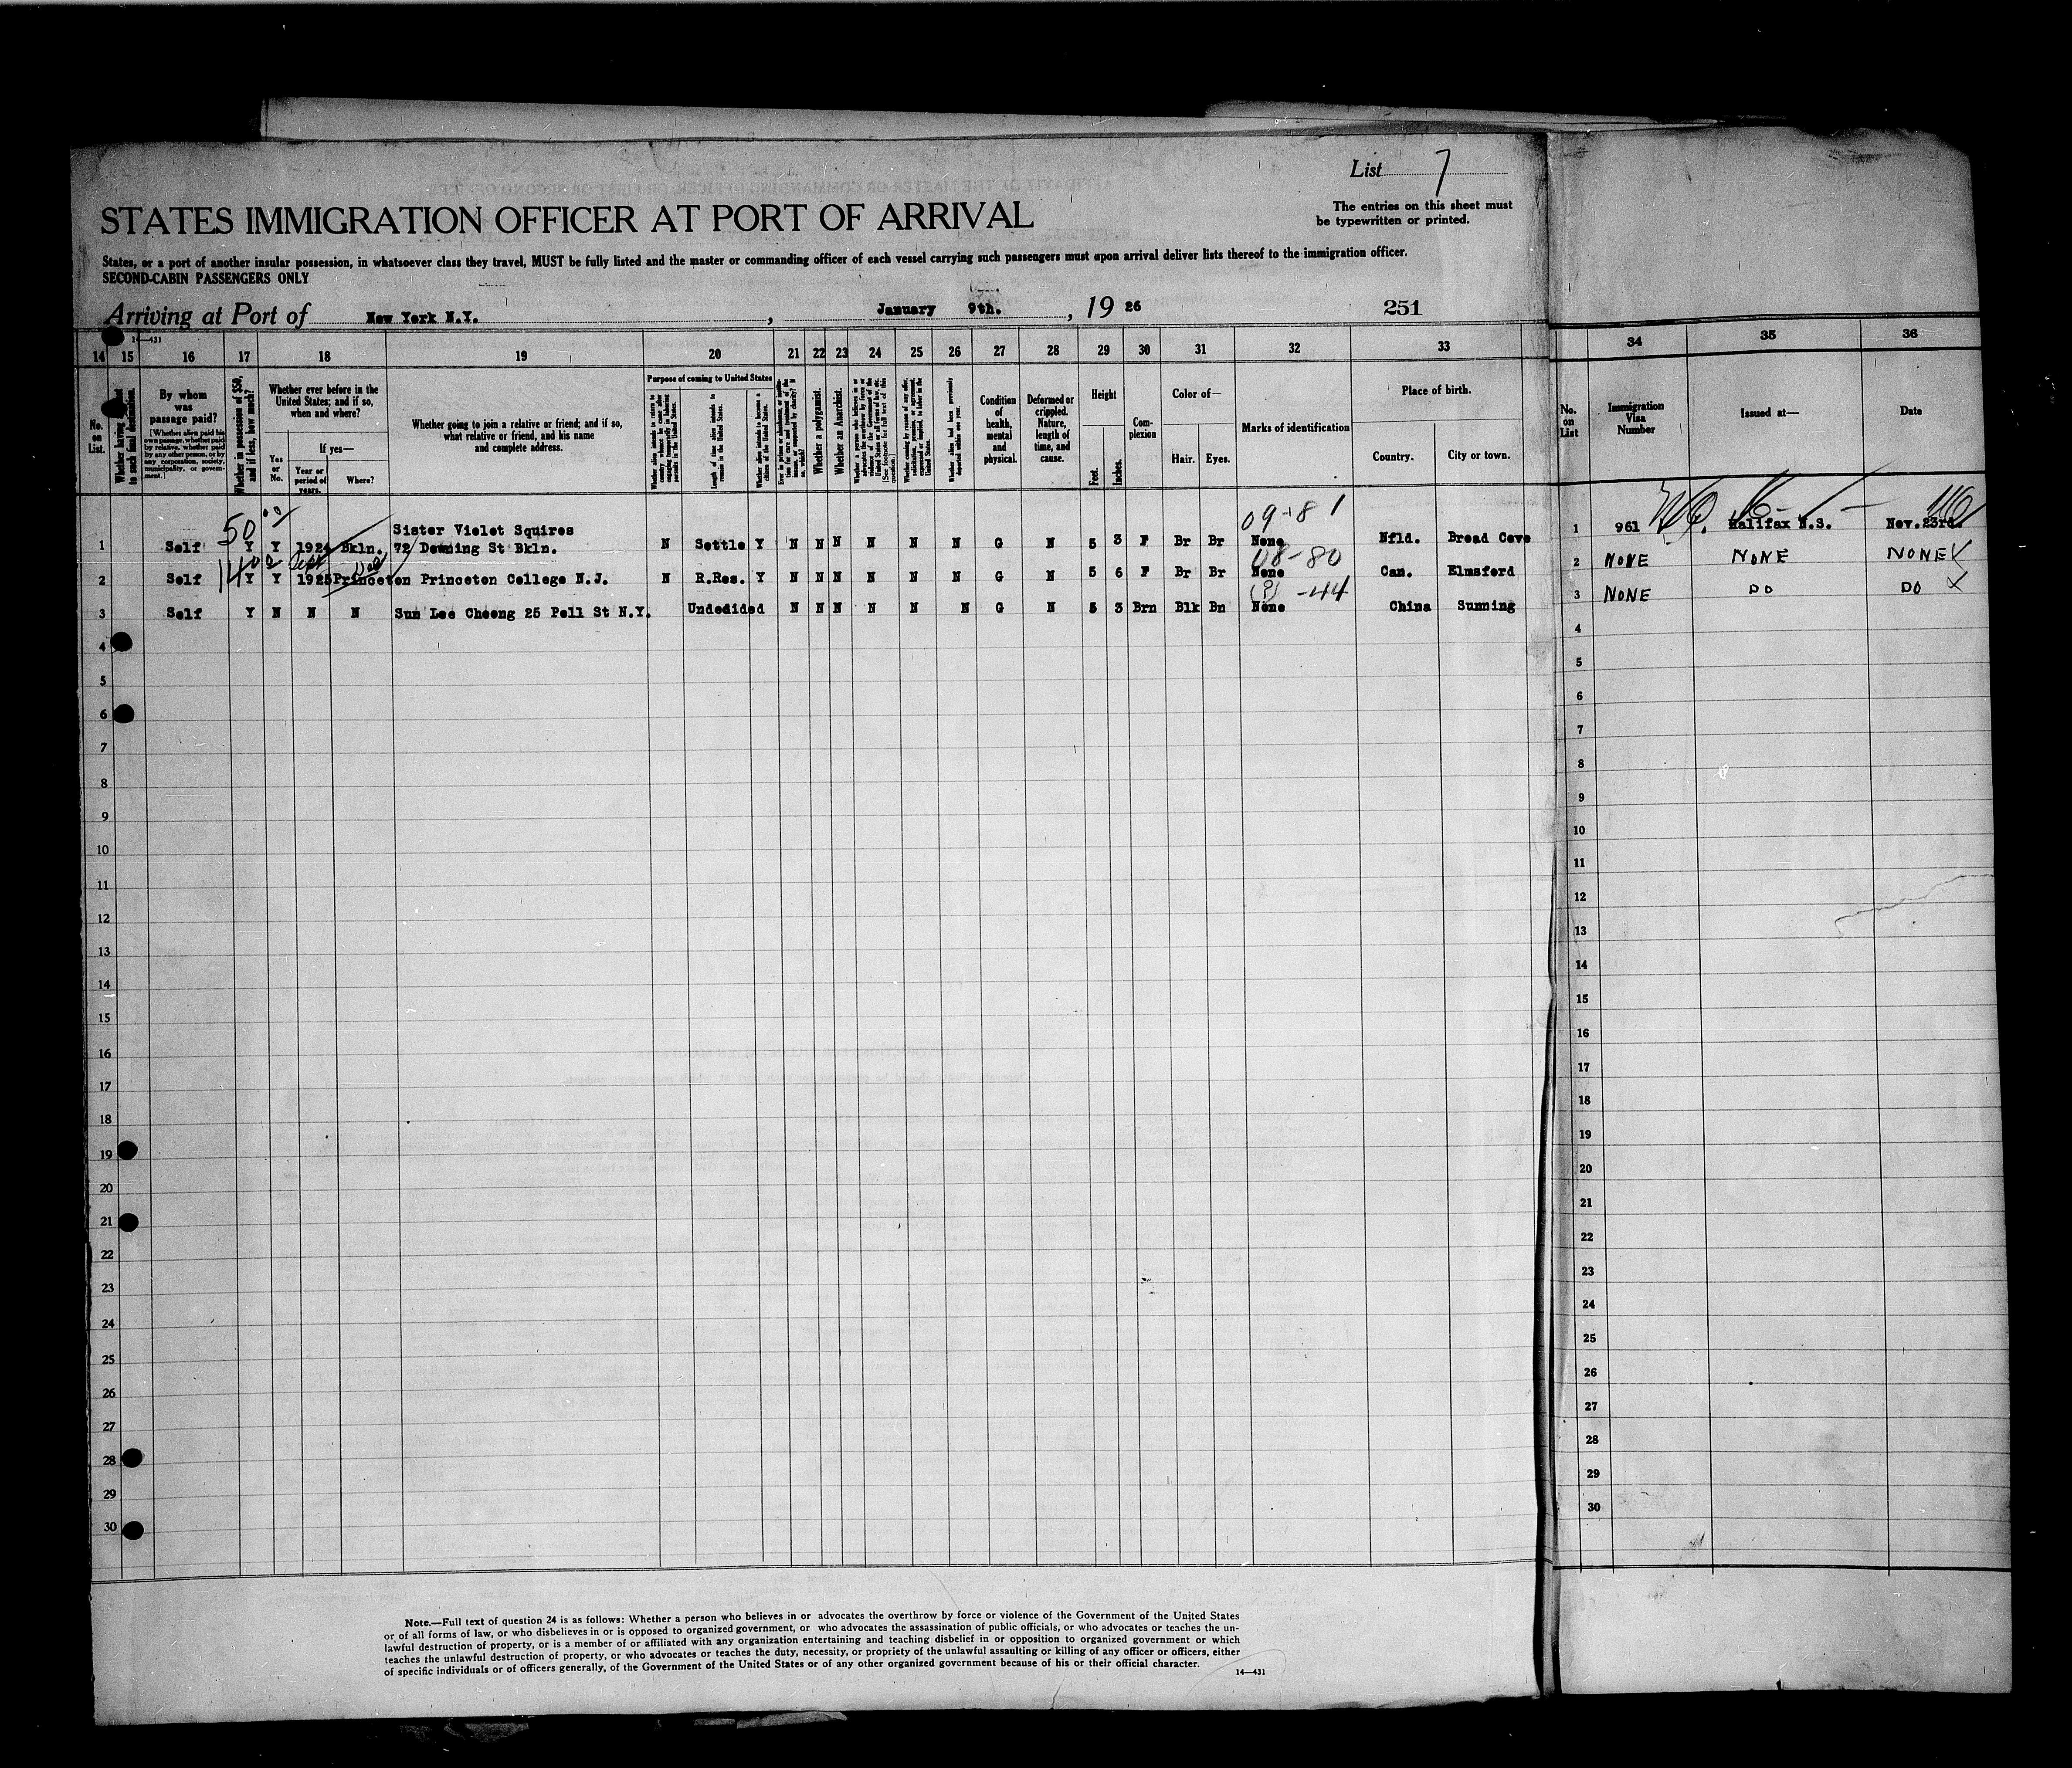 List 7
The entries on this sheet must
be typewritten or printed.
STATES IMMIGRATION OFFICER AT PORT OF ARRIVAL
States, or a port of another insular possession, in whatsoever class they travel, MUST be fully listed and the master or commanding officer of each vessel carrying such passengers must upon arrival deliver lists thereof to the immigration officer.
SECOND-CABIN PASSENGERS ONLY
Arriving at Port of New York N.Y. , January 9th. , 19 26 251
14—431
14 15 16 17 18 19 20 21 22 23 24 25 26 27 28 29 30 31 32 33 34 35 36
No. on List.
By whom was passage paid?
Whether in possession of $50, and if less, how much?
Whether ever before in the United States; and if so, when and where?
Yes or No.
If yes—
Year or period of years.
Where?
Whether going to join a relative or friend; and if so, what relative or friend, and his name and complete address.
Purpose of coming to United States
Length of time alien intends to remain in the United States.
Whether alien intends to become a citizen of the United States.
Whether a polygamist.
Whether an Anarchist.
Condition of health, mental and physical.
Deformed or crippled. Nature, length of time, and cause.
Height
Feet. Inches.
Com-plexion
Color of—
Hair. Eyes.
Marks of identification
Place of birth.
Country. City or town.
No. on List
Immigration Visa Number
Issued at—
Date
50 00
09-81
Sister Violet Squires
1 Self Y Y 1924 Bkln. 72 Downing St Bkln. N Settle Y N N N N N N G N 5 3 F Br Br None Nfld. Broad Cove 1 961 Halifax N.S. Nov.23rd.
08-80
2 Self Y Y 1925 Princeton Princeton College N.J. N R.Res. Y N N N N N N G N 5 6 F Br Br None Can. Elmsford 2 NONE NONE NONE
-44
3 Self Y N N N Sun Lee Cheong 25 Pell St N.Y. Undedided N N N N N N G N 5 3 Brn Blk Bn None China Sunning 3 NONE DO DO
4 4
5 5
6 6
7 7
8 8
9 9
10 10
11 11
12 12
13 13
14 14
15 15
16 16
17 17
18 18
19 19
20 20
21 21
22 22
23 23
24 24
25 25
26 26
27 27
28 28
29 29
30 30
Note.—Full text of question 24 is as follows: Whether a person who believes in or advocates the overthrow by force or violence of the Government of the United States
or of all forms of law, or who disbelieves in or is opposed to organized government, or who advocates the assassination of public officials, or who advocates or teaches the un-
lawful destruction of property, or is a member of or affiliated with any organization entertaining and teaching disbelief in or opposition to organized government or which
teaches the unlawful destruction of property, or who advocates or teaches the duty, necessity, or propriety of the unlawful assaulting or killing of any officer or officers, either
of specific individuals or of officers generally, of the Government of the United States or of any other organized government because of his or their official character.
14—431